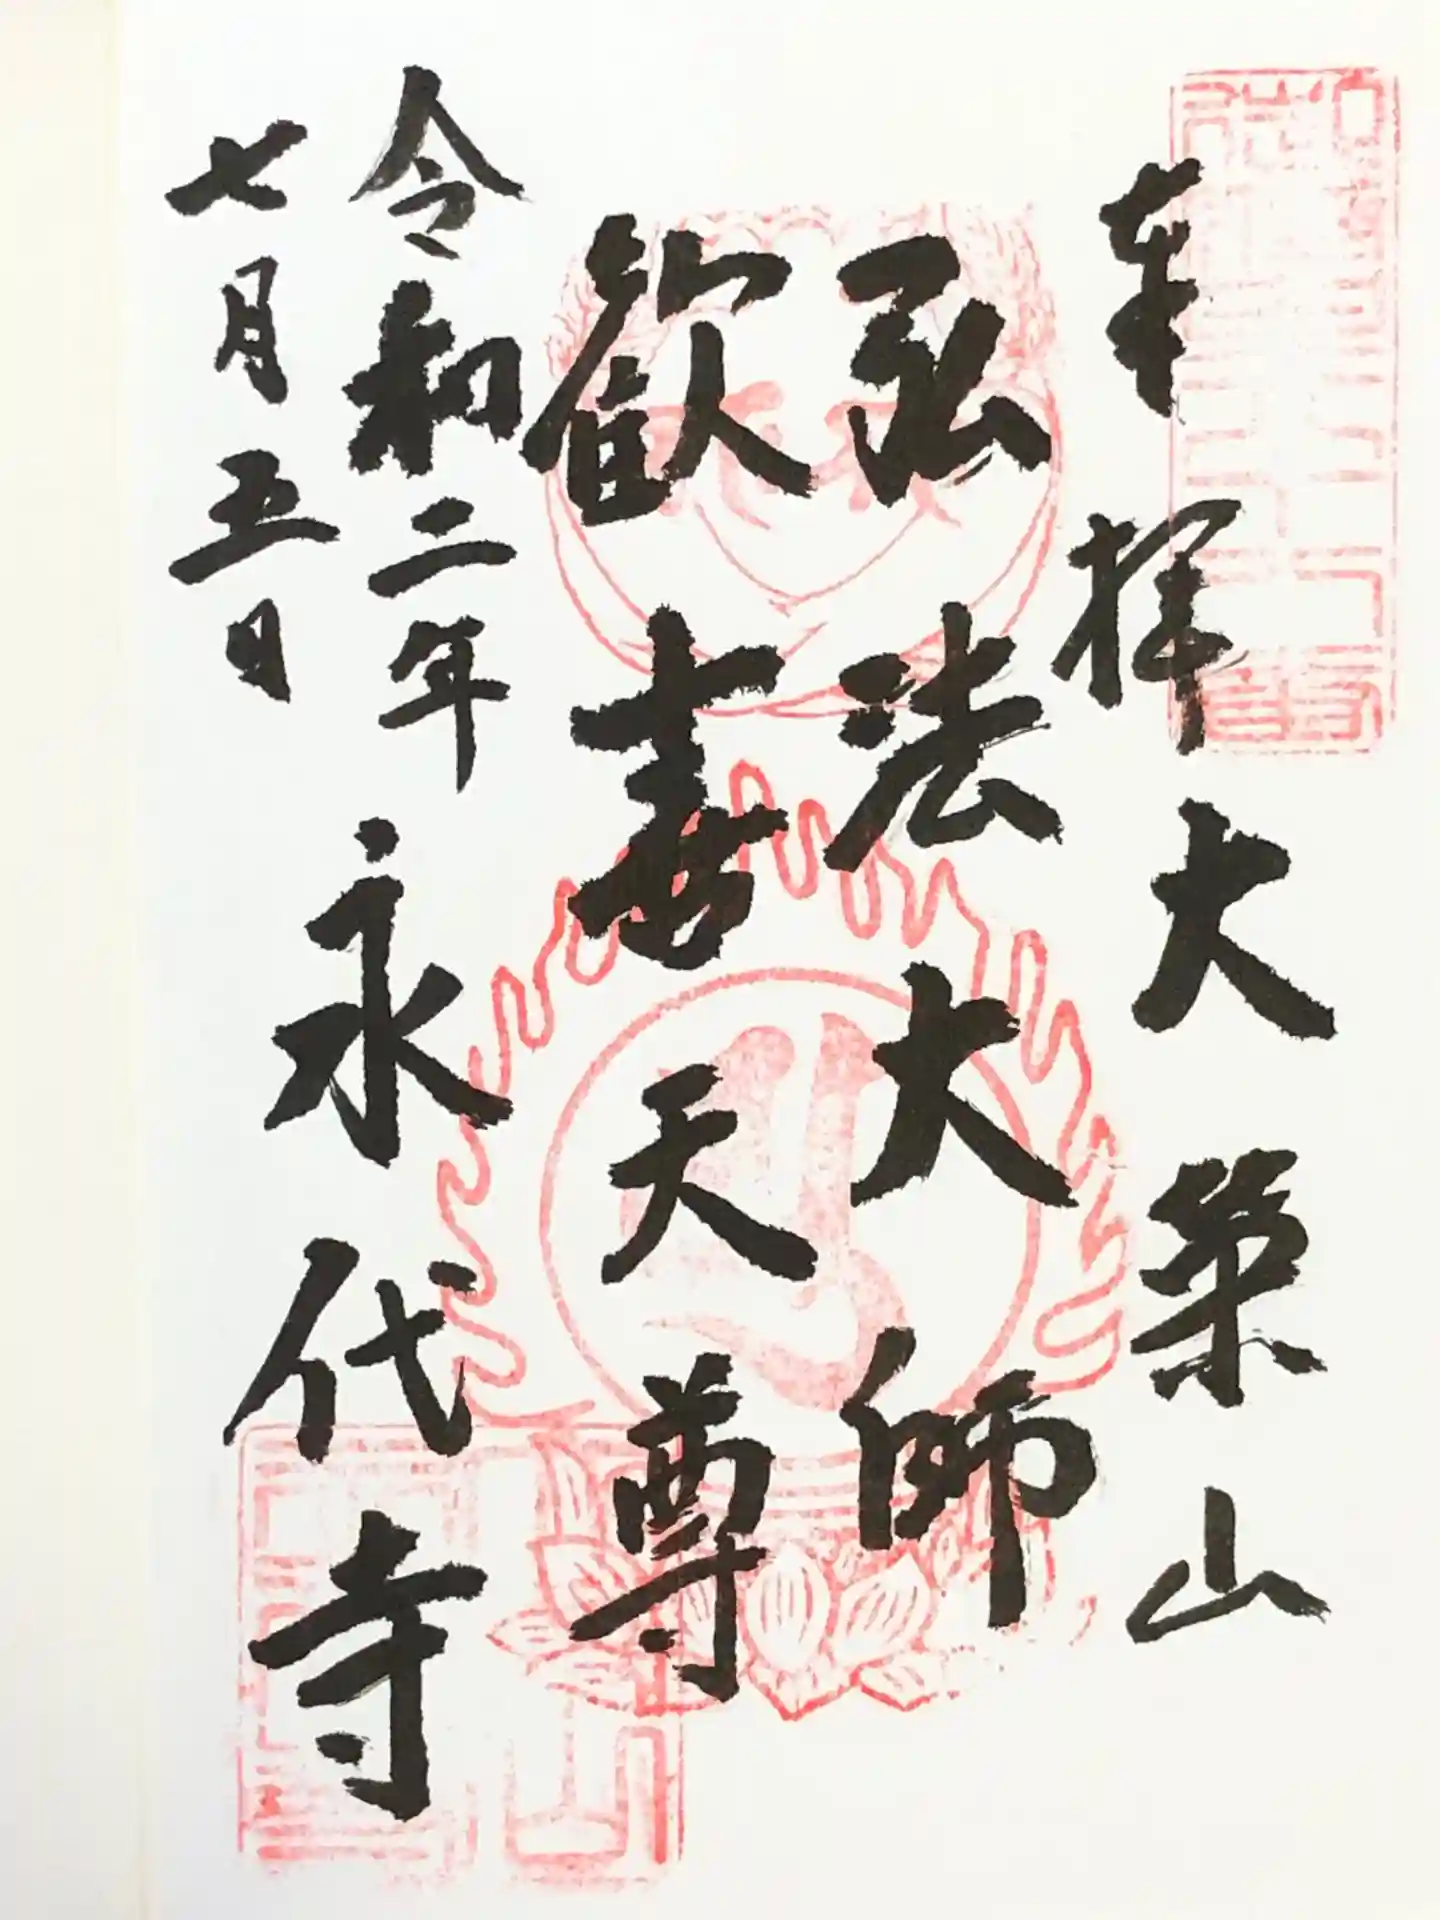 奉拝 大榮山
弘法大師
歓喜天尊
永代寺
令和二年
七月五日